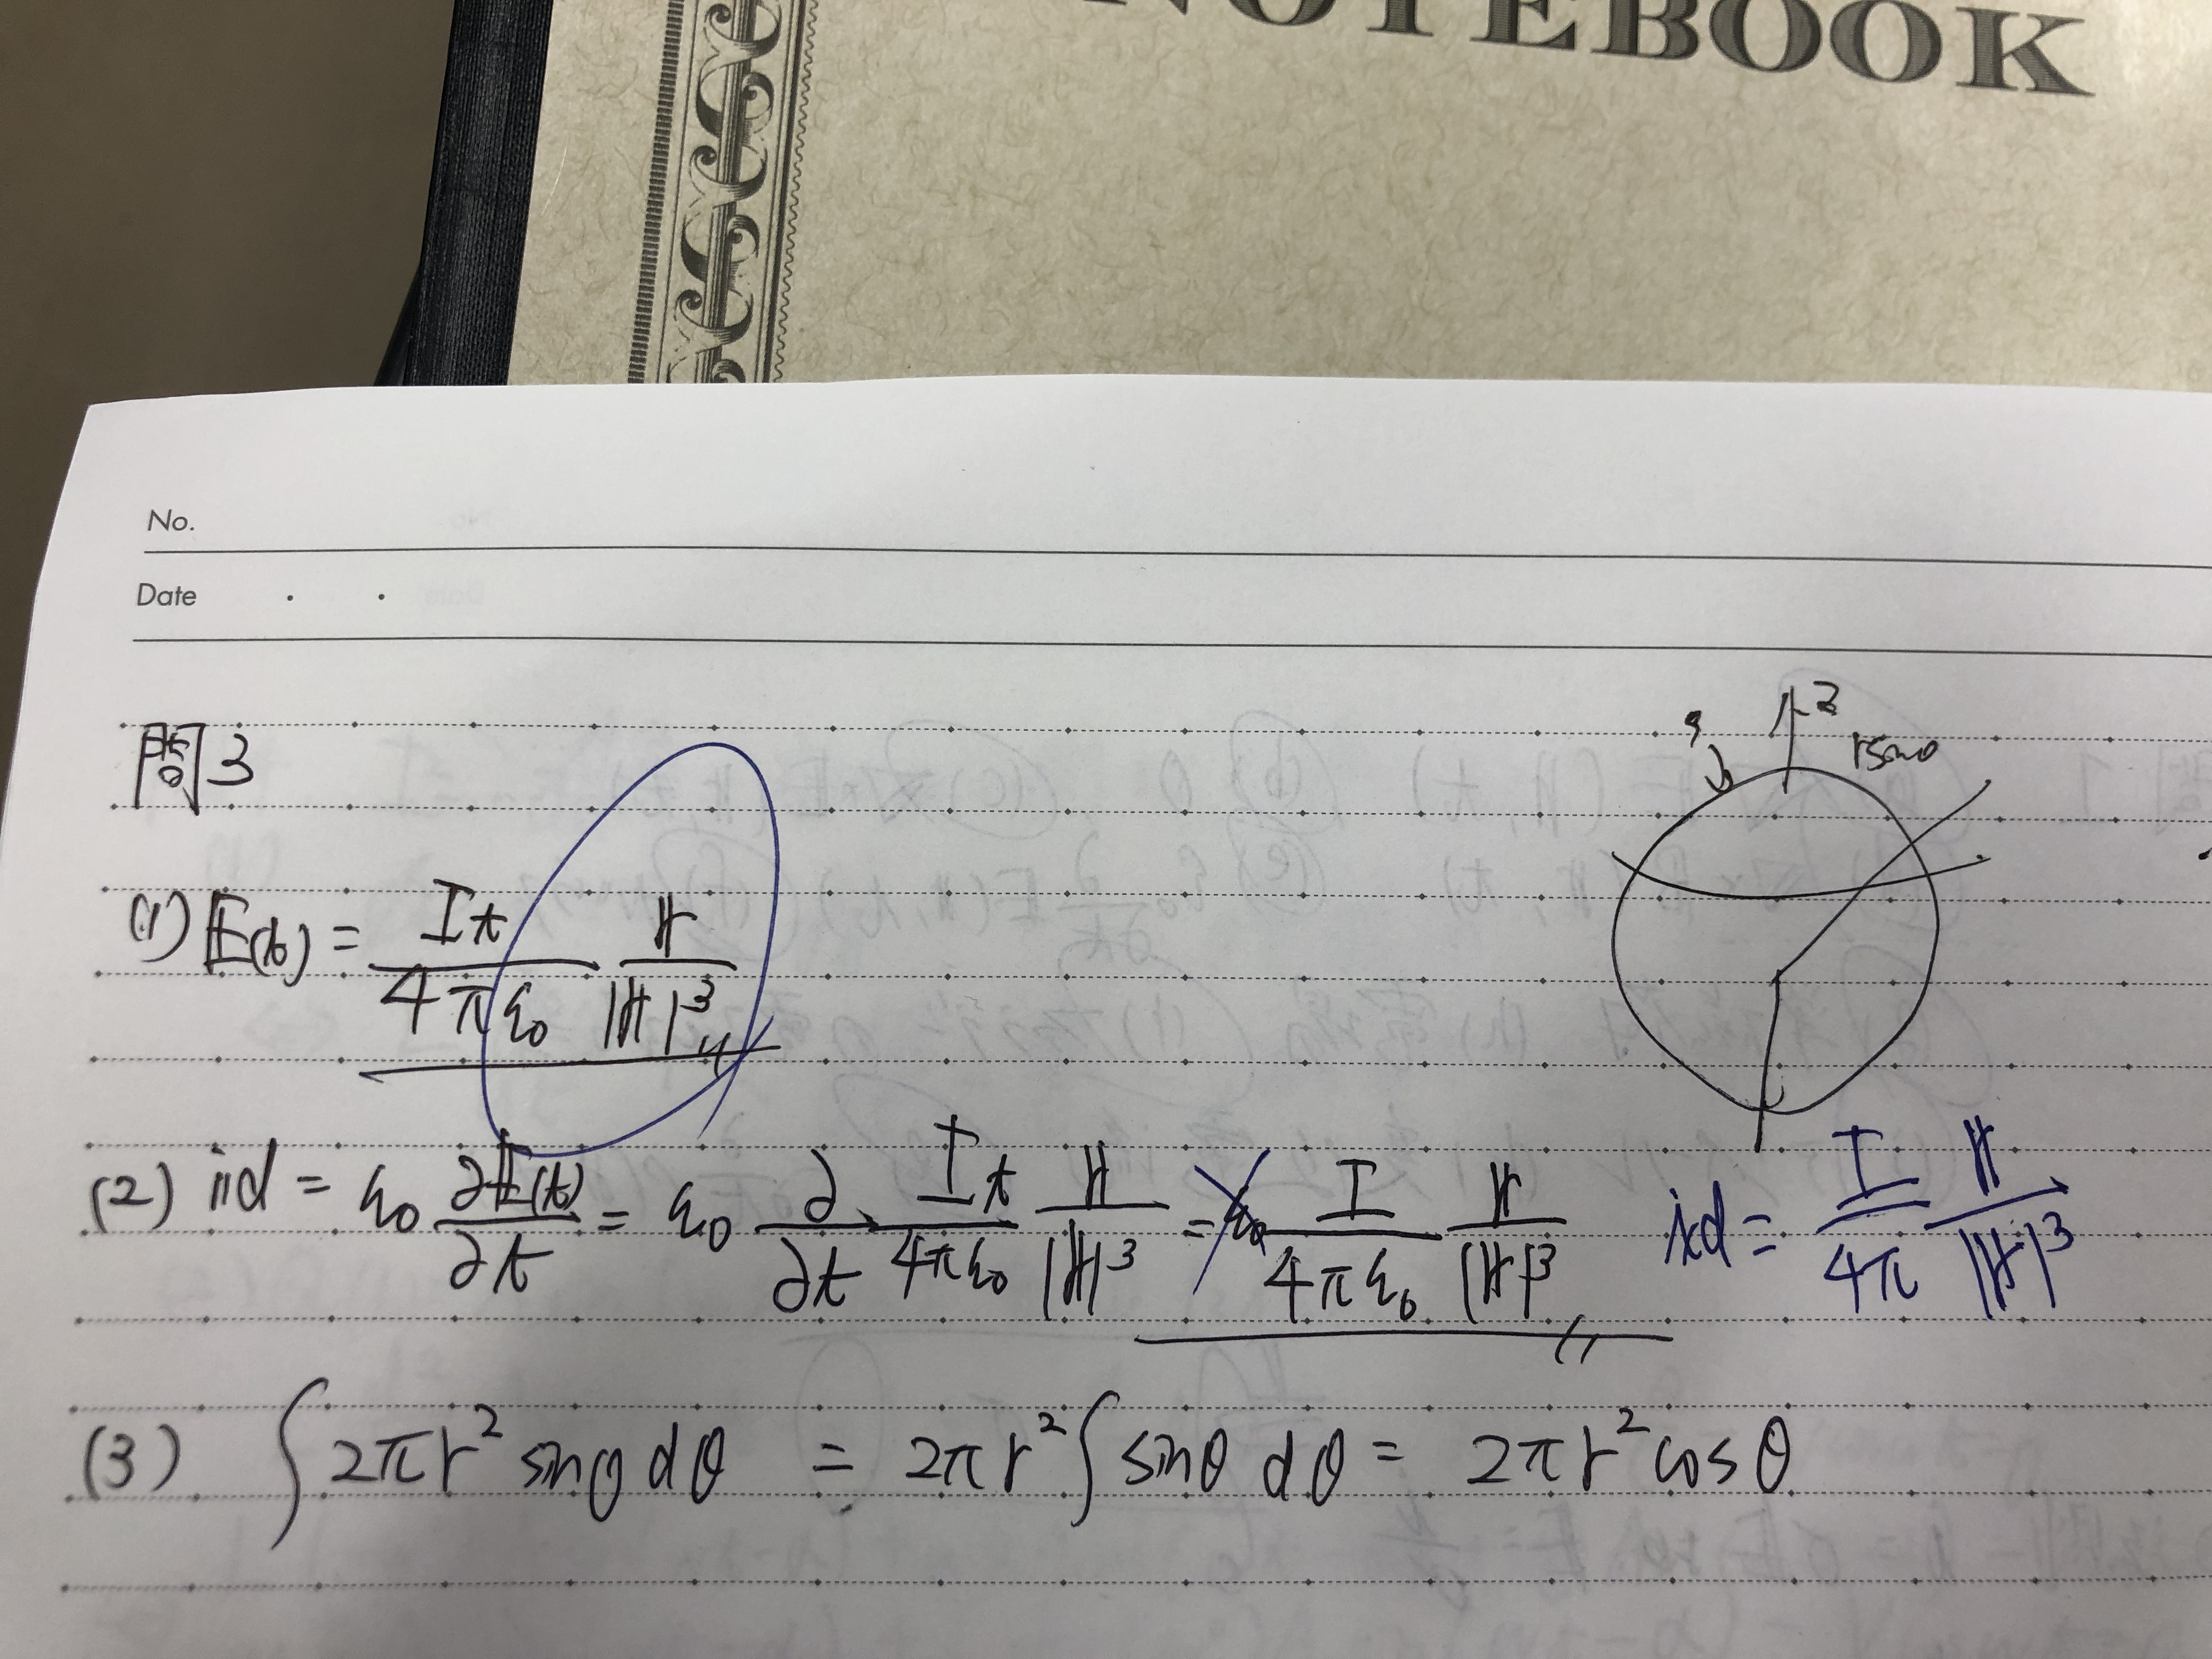 NOTEBOOK
No.
Date . .
問3
z
rsinθ
(1) E(t) = It/4πε0 r/|r|³
(2) id = ε0 ∂E(t)/∂t = ε0 ∂/∂t It/4πε0 r/|r|³ = ε0 I/4πε0 r/|r|³ id = I/4π r/|r|³
(3) ∫2πr² sinθ dθ = 2πr² ∫sinθ dθ = 2πr² cosθ